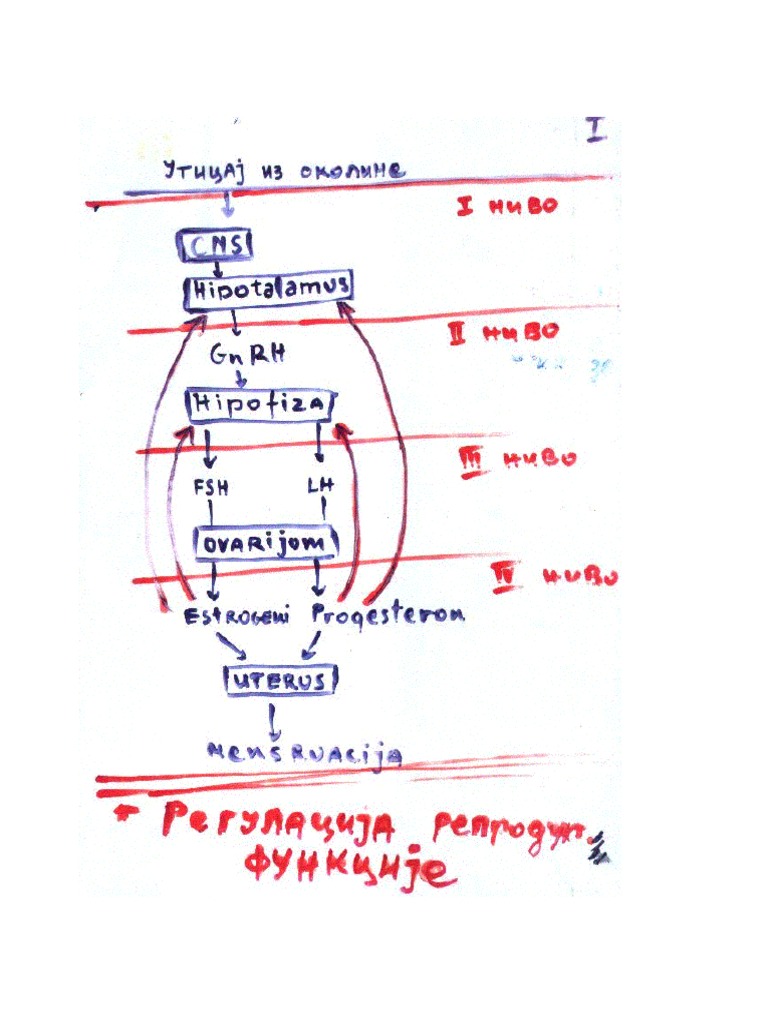 I
Утицај из околине
I ниво
CNS
Hipotalamus
II ниво
GnRH
Hipofiza
III ниво
FSH LH
Ovarijom
IV ниво
Estrogeni Progesteron
Uterus
Menstruacija
Регулација репродук.
функције